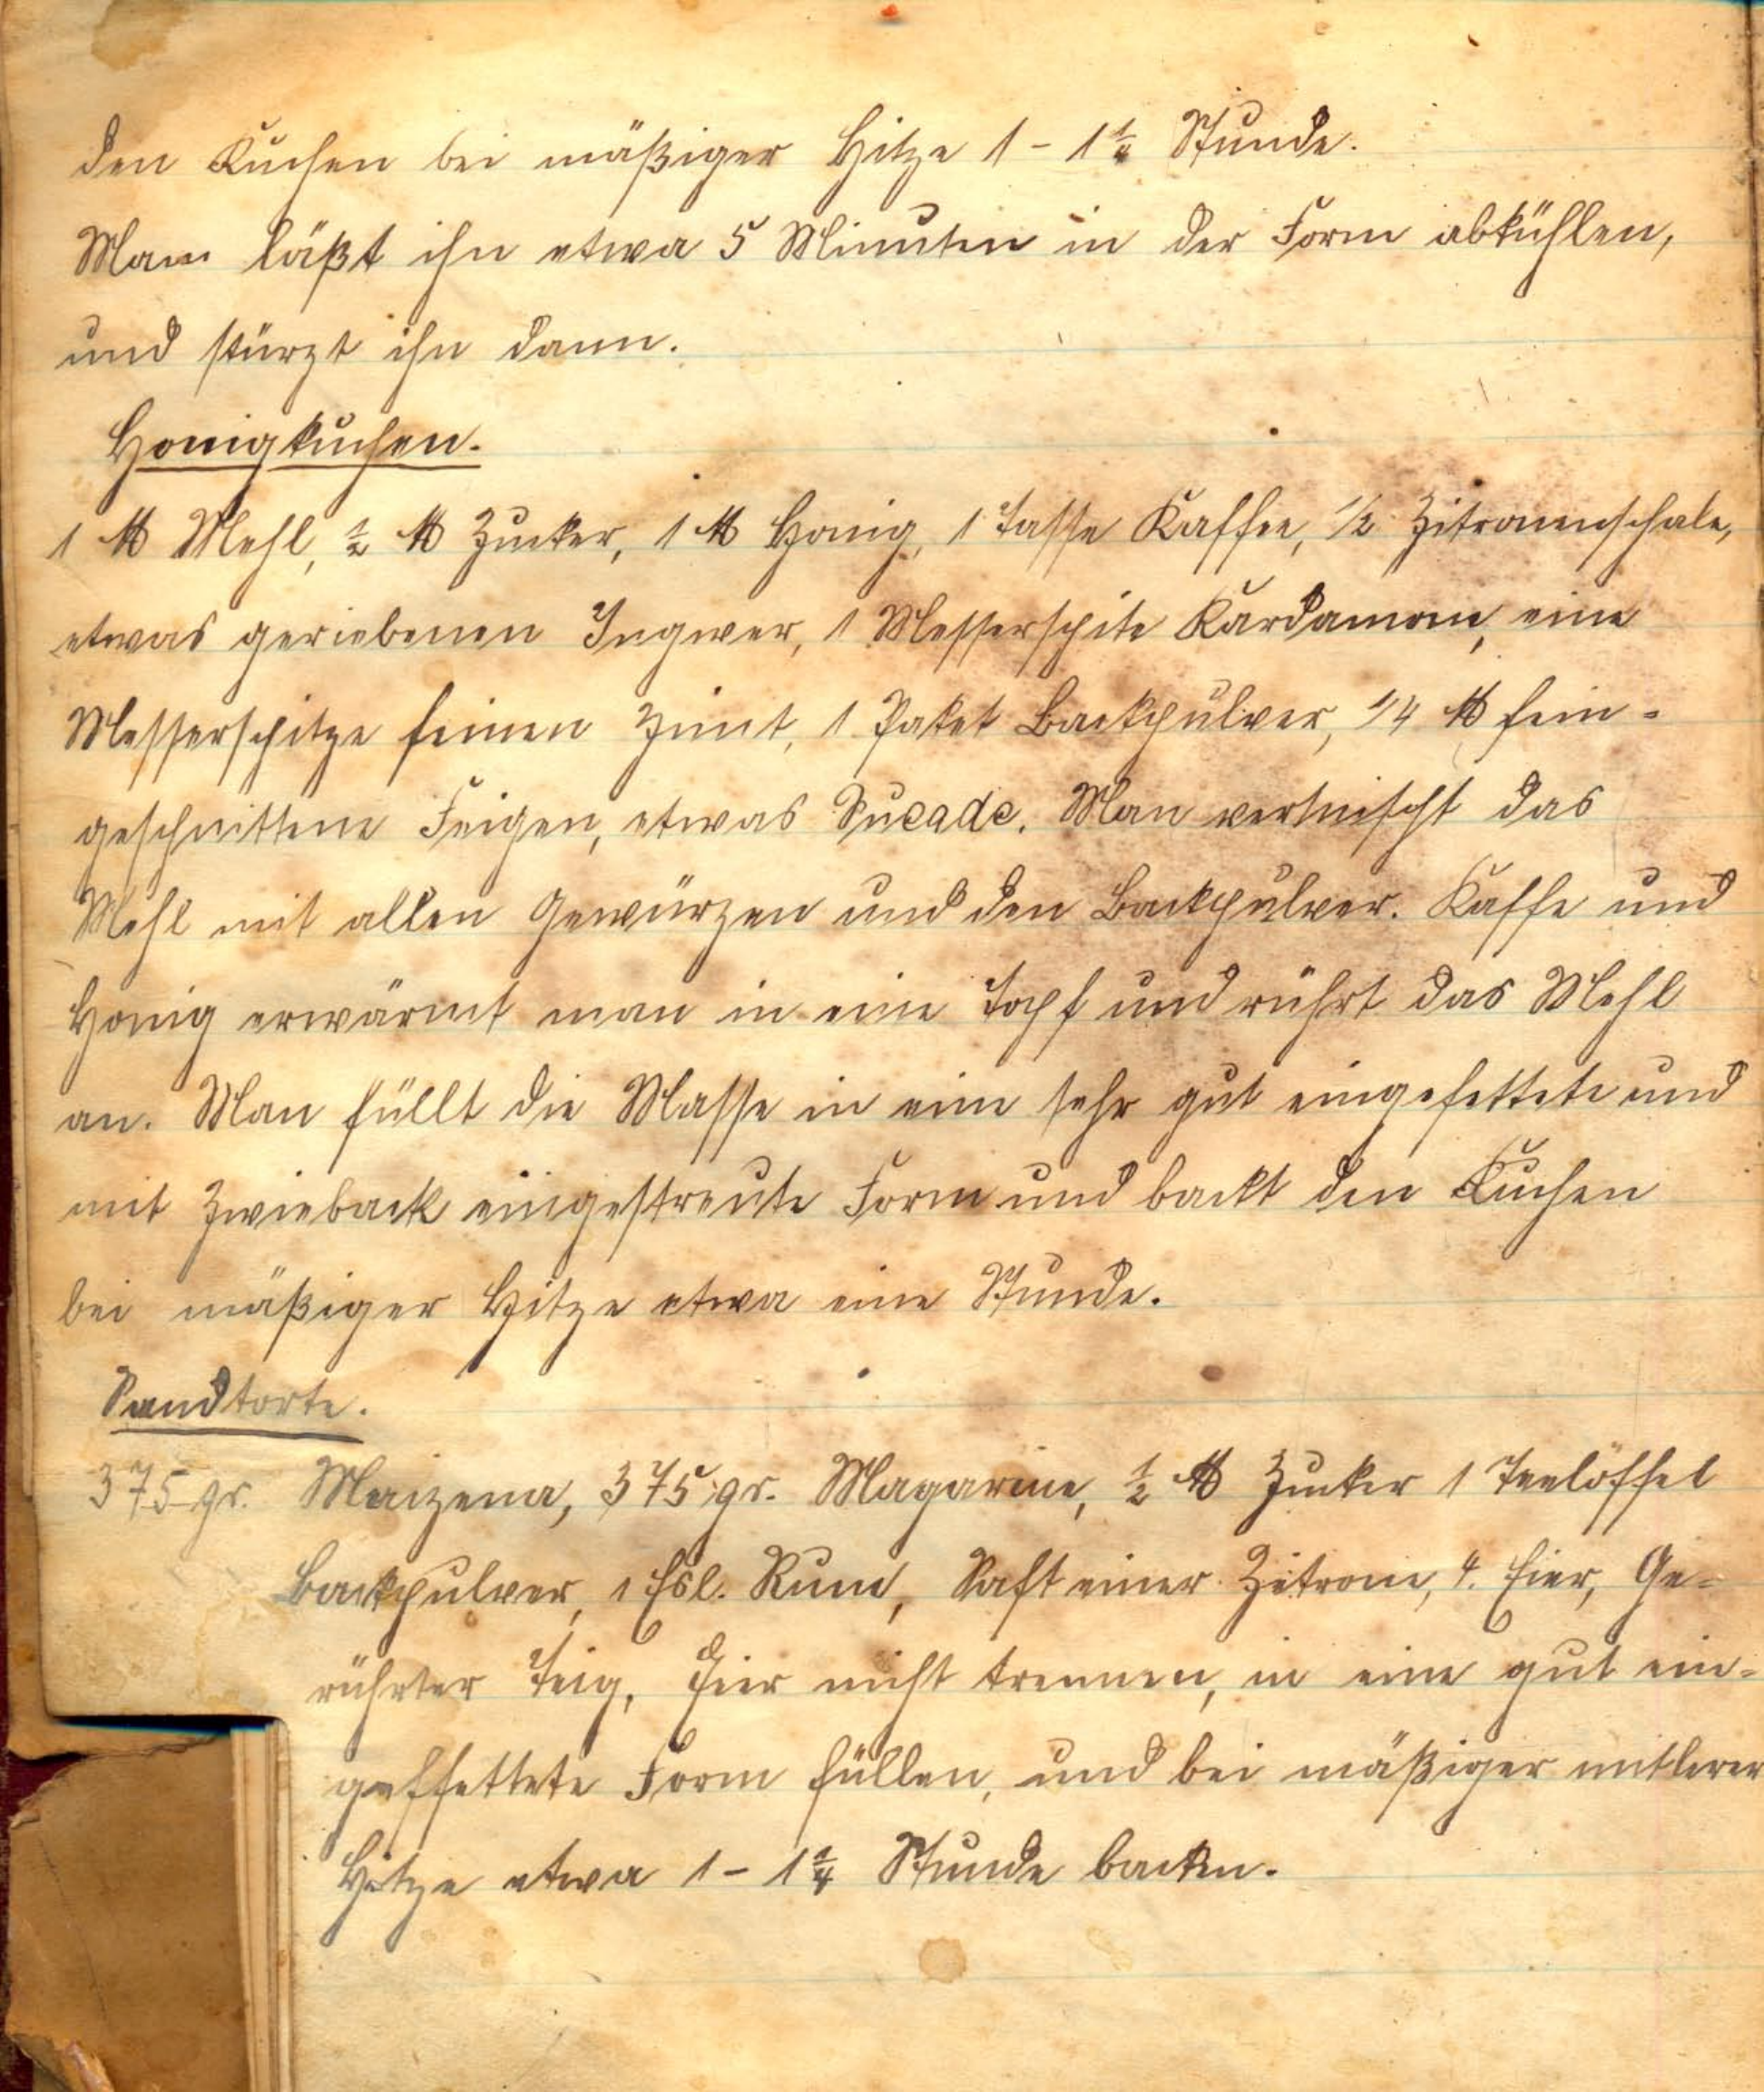 den Kuchen bei mäßiger Hitze 1 - 1¼ Stunde.
Man läßt ihn etwa 5 Minuten in der Form abkühlen,
und stürzt ihn dann.
Honigkuchen.
1 ℔ Mehl, ½ ℔ Zucker, 1 ℔ Honig, 1 Tasse Kaffee, 1/2 Zitronenschale,
etwas geriebenen Ingwer, 1 Messerspite Kardamom, eine
Messerspitze feinen Zimt, 1 Paket Backpulver, 1/4 ℔ fein-
geschnittene Feigen, etwas Sucade. Man vermischt das
Mehl mit allen Gewürzen und den Backpulver. Kaffe und
Honig erwärmt man in eine Topf und rührt das Mehl
an. Man füllt die Masse in eine sehr gut eingefettete und
mit Zwieback eingestreute Form und backt den Kuchen
bei mäßiger Hitze etwa eine Stunde.
Sandtorte.
375 gr. Maizena, 375 gr. Magarine, ½ ℔ Zucker 1 Teelöffel
Backpulver, 1 Esl. Rum, Saft einer Zitrone, 4. Eier, Ge-
rührter Teig, Eier nicht trennen, in eine gut ein-
geffettete Form füllen, und bei mäßiger mittlerer
Hitze etwa 1 - 1¼ Stunde backen.